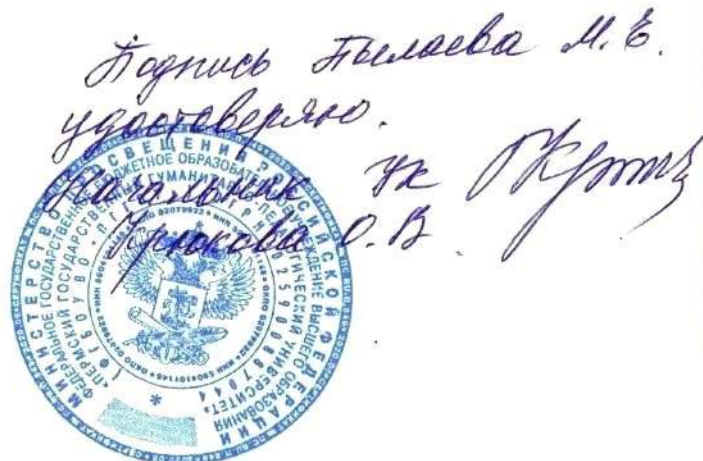 Подпись Пылаева М.Е.
удостоверяю.
Начальник УК
Крюкова О.В
МИНИСТЕРСТВО ПРОСВЕЩЕНИЯ РОССИЙСКОЙ ФЕДЕРАЦИИ
ФЕДЕРАЛЬНОЕ ГОСУДАРСТВЕННОЕ БЮДЖЕТНОЕ ОБРАЗОВАТЕЛЬНОЕ УЧРЕЖДЕНИЕ ВЫСШЕГО ОБРАЗОВАНИЯ
«ПЕРМСКИЙ ГОСУДАРСТВЕННЫЙ ГУМАНИТАРНО-ПЕДАГОГИЧЕСКИЙ УНИВЕРСИТЕТ»